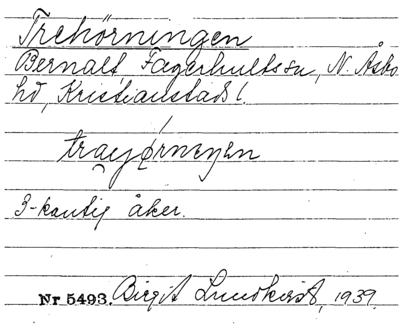 Trehörningen
Bernalt, Fagerhultssn, N. Åsbo
hd, Kristianstads l.
3-kantig åker.
Nr. 5493. Birgit Lundkvist, 1939.